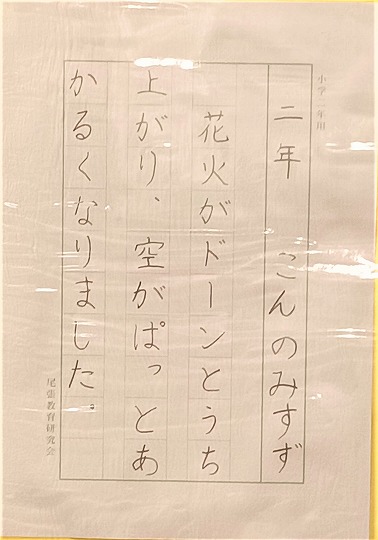 小学二年用
二年 こんのみすず
花火がドーンとうち
上がり、空がぱっとあ
かるくなりました。
尾張教育研究会